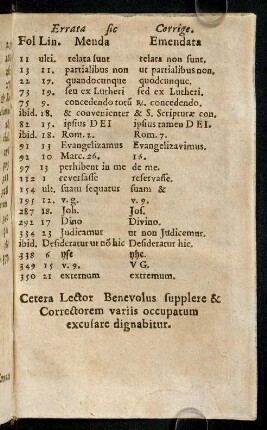 Errata sic Corrige.
Fol Lin. Menda Emendata
11 ulti. telata sunt telata non sunt.
13 21. partialibus non ut partialibus non,
22 17. quandocunque quodcunque.
73 19. seu ex Lutheri sed ex Lutheri.
75 9. concedendo totũ &c. concedendo.
ibid. 18. & convenienter & S. Scripturæ con.
82 15. ipsius DEI ipsius tamen DEI.
ibid. 18. Rom. 2. Rom. 7.
91 13 Evangelizamus Evangelizavimus.
92 10 Marc. 26. 16.
97 13 perhibent in me de me.
112 1 eversasse reservasse.
154 ult. suam sequatur suam &
195 12. v. g. v. 9.
287 18. Joh. Jos.
292 17 Dino Divino.
334 23 Judicamur ut non Judicemur.
ibid. Desideratur ut nõ hic Desideratur hic.
338 6
349 15 v. 9. V G.
350 21 externum extremum.
Cetera Lector Benevolus supplere &
Correctorem variis occupatum
excusare dignabitur.